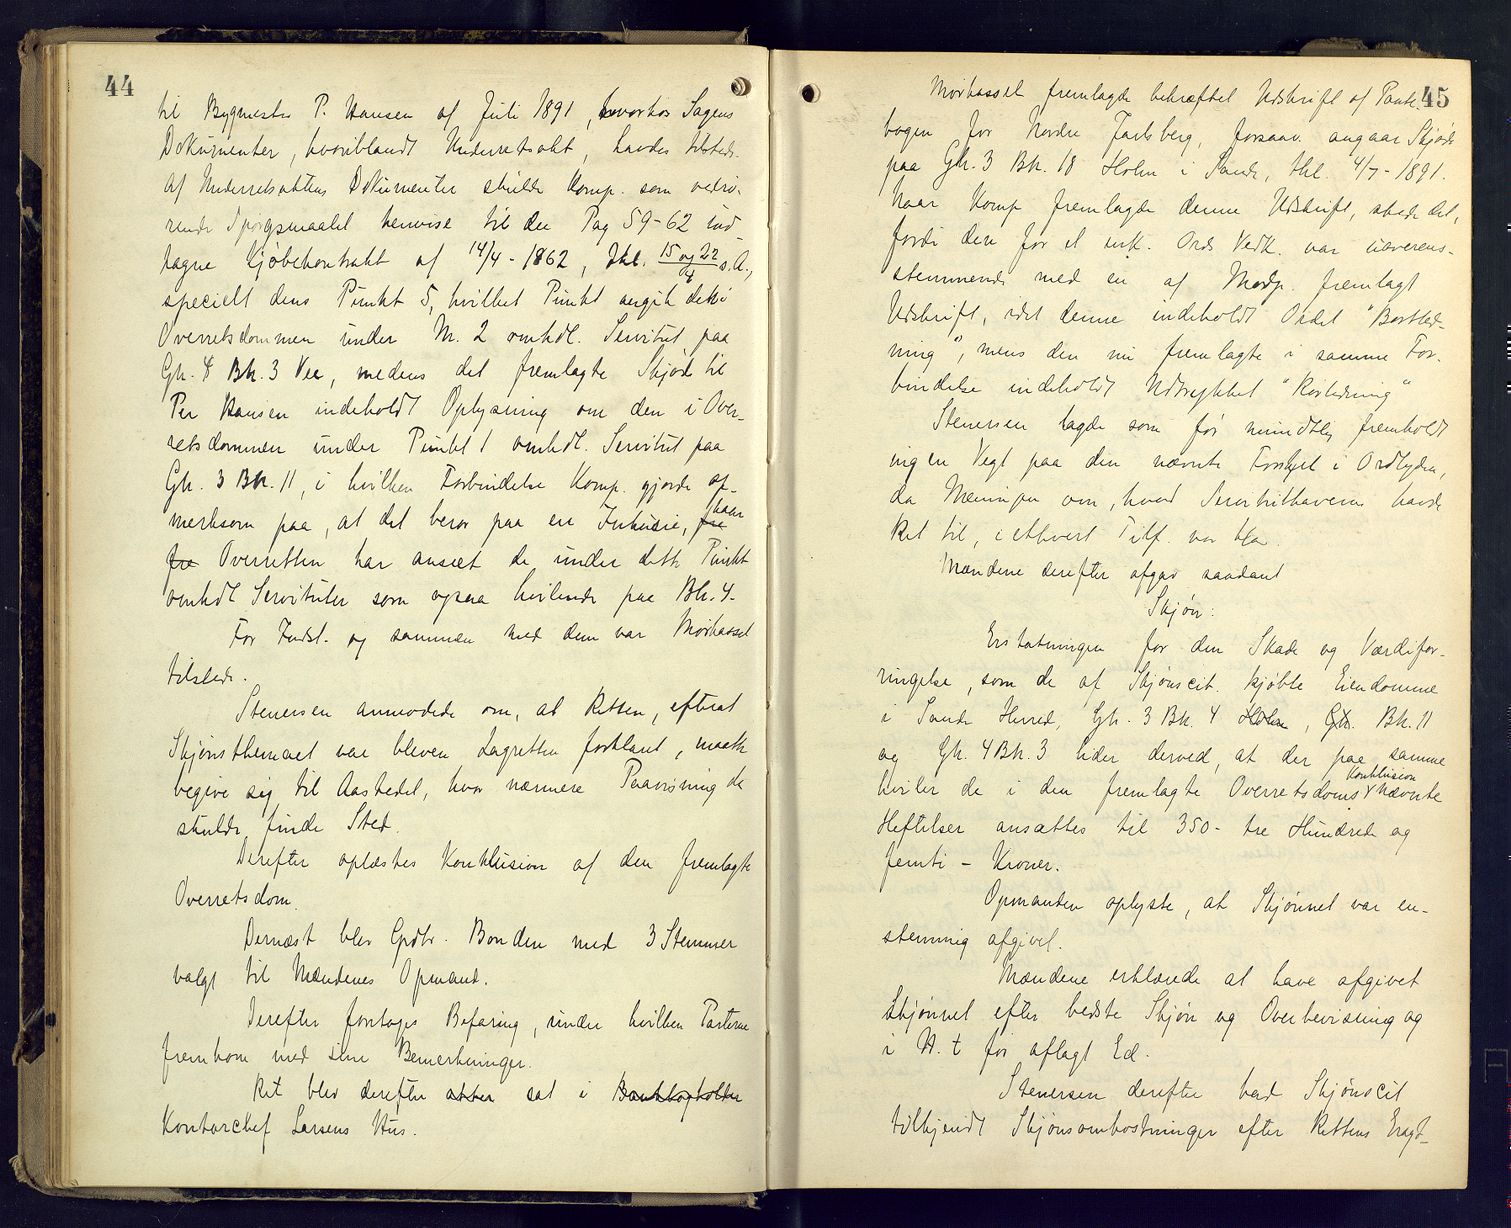 44
til Bygmester P. Hansen af Juli 1891, hvorhos Sagens
Dokumenter, hvoriblandt Underretsakt, havdes tilstede.
Af Underretsaktens Dokumenter skulde Komp. som vedrø-
rende Spørgsmaalet henvise til den Pag 59-62 ind-
tagne Kjøbekontrakt af 14/4 - 1862, thl. 15 og 22/4 s. A.,
specielt dens Punkt 5, hvilket Punkt angik det i
Overretsdommen under Nr. 2 omhdl. Servitut paa
Gh. 4 Bk. 3 Vee, medens det fremlagte Skjøde til
Per Hansen indeholdt Oplysning om den i Over-
retsdommen under Punkt 1 omhdl. Servitut paa
Gh. 3 Bk. 11, i hvilken Forbindelse Komp. gjorde op-
merksom paa, at det beror paa en Inkurie, naar
Overretten har ansæet de under dette Punkt
omhdl Servituter som ogsaa hvilende paa Bk. 4.
For Indst. og sammen med dem var Mørhassel
tilstede.
Stenersen anmodede om, at Retten, efterat
Skjønsthemaet var bleven Lagretten forklaret, maatte
begive sig til Aastedet, hvor nærmere Paavisning da
skulde finde Sted.
Derefter oplæstes Konklusion af den fremlagte
Overretsdom.
Dernæst blev Grdbr. Bonden med 3 Stemmer
valgt til Mændenes Opmand.
Derefter foretoges Befaring, under hvilken Parterne
fremkom med sine Bemerkninger.
Ret blev derefter atter sat i Bankbogholder
Kontorchef Larsens Hus.
45
Mørhassel fremlagde bekræftet Udskrift af Pante-
bogen for Nordre Jarlsberg, forsaav. angaar Skjøde
paa Gh. 3 Bk. 18 Holm i Sande, thl. 4/7 - 1891.
Naar Komp fremlagde denne Udskrift, skede det,
fordi den for et enk. Ords Vedk. var uoverens-
stemmende med en af Modp. fremlagt
Udskrift, idet denne indeholdt Ordet "Bortled-
ning", mens den nu fremlagte i samme For-
bindelse indeholdt Udtrykket "Rørledning"
Stenersen lagde som før mundtlig fremholdt
ingen Vegt paa den nævnte Forskjel i Ordlyden,
da Meningen om, hvad Servituthaveren havde
Ret til, i ethvert Tilf. var klar.
Mændene derefter afgav saadant
Skjøn:
Erstatningen for den Skade og Værdifor-
ringelse, som de af Skjønscit. kjøbte Eiendomme
i Sande Herred, Gh. 3 Bk. 4 Holm, Gh. Bk. 11
og Gh. 4 Bk. 3 lider derved, at der paa samme
hviler de i den fremlagte Overretsdoms Konklusion nævnte
Heftelser ansættes til 350 - tre Hundrede og
femti - Kroner.
Opmanden oplyste, at Skjønnet var en-
stemmig afgivet.
Mændene erklærede at have afgivet
Skjønnet efter bedste Skjøn og Overbevisning og
i H. t. før aflagt Ed.
Stenersen derefter bad Skjønscit
tilkjendt Skjønsomkostninger efter Rettens Eragt-